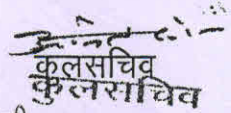 कुलसचिव
कुलसचिव